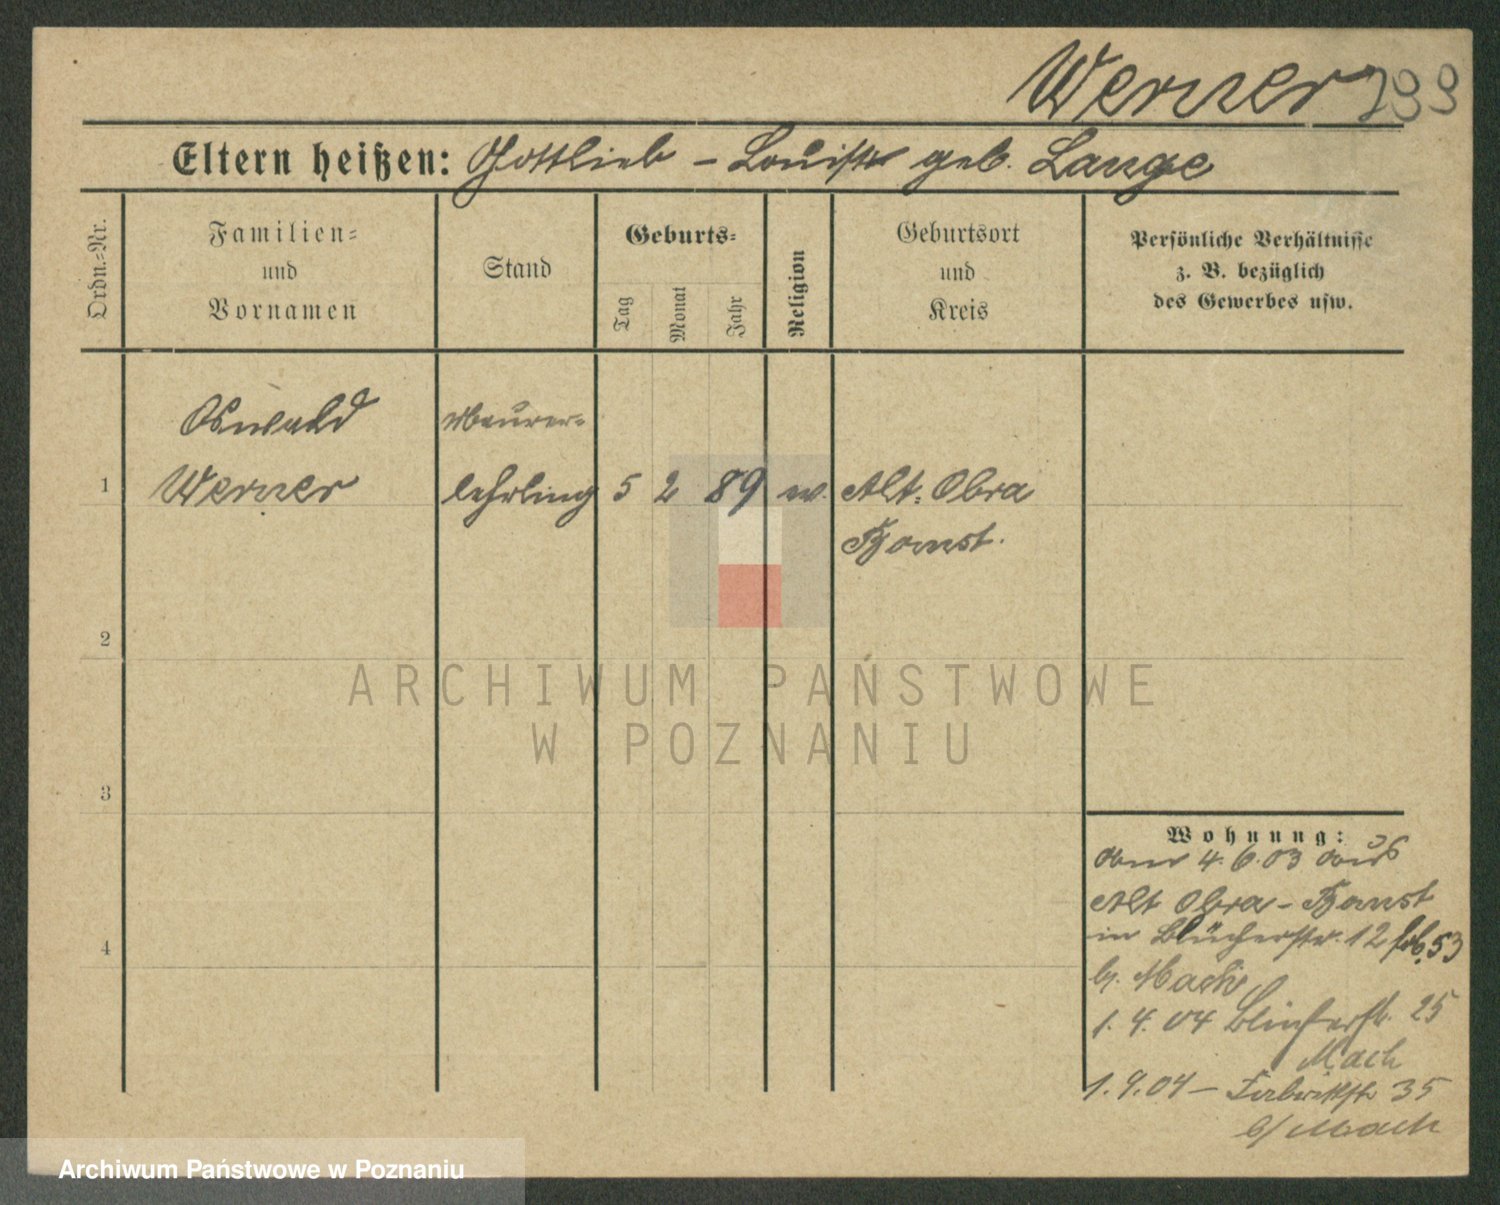 Werner 799
Eltern heißen: Gottlieb – Louise geb. Lange
Ordn.-Nr.
Familien-
und
Vornamen
Stand
Geburts-
Tag
Monat
Jahr
Religion
Geburtsort
und
Kreis
Persönliche Verhältnisse
z. B. bezüglich
des Gewerbes usw.
Oswald
Maurer-
1 Werner lehrling 5 2 89 ev. Alt-Obra
Bomst.
2
ARCHIWUM PAŃSTWOWE
W POZNANIU
3
Wohnung:
am 4.6.03 aus
Alt Obra - Bomst
in Blücherstr. 12 53
b. Mach
1.4.04 Blücherstr. 25
Mach
1.9.04 – Fabrikstr 35
b/ Mach
4
Archiwum Państwowe w Poznaniu